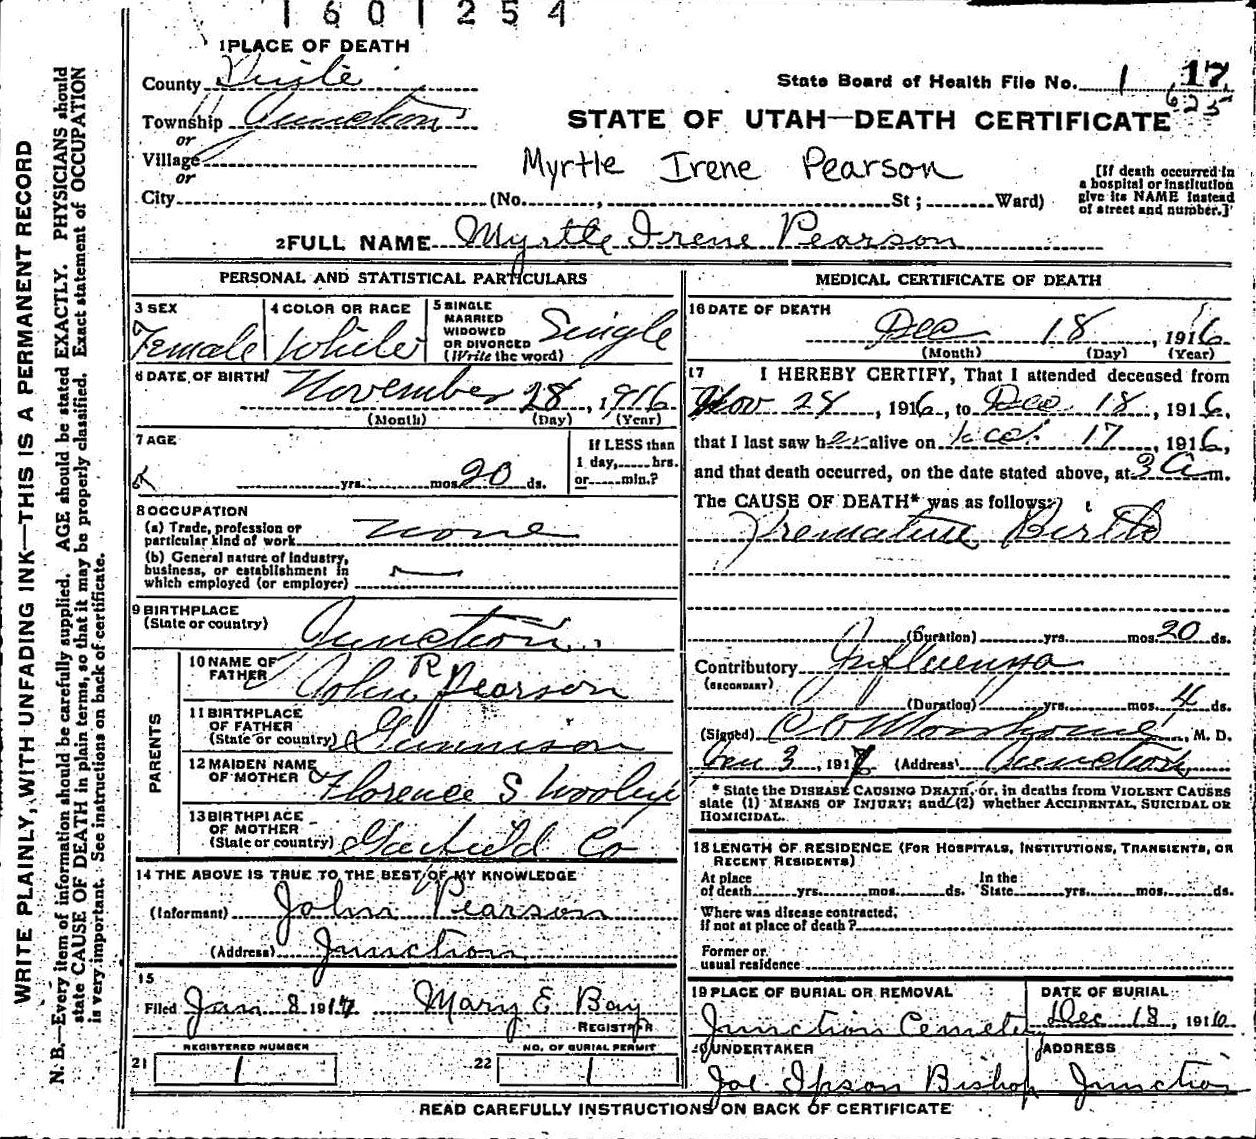 1 6 0 1 2 5 4
1 PLACE OF DEATH
County
State Board of Health File No. 1 17
625
Township Junction
or
STATE OF UTAH—DEATH CERTIFICATE
Village
or
Myrtle Irene Pearson
[If death occurred in
a hospital or institution
give its NAME instead
of street and number.]
City (No. , St ; Ward)
2 FULL NAME Myrtle Irene Pearson
PERSONAL AND STATISTICAL PARTICULARS
3 SEX
Female
4 COLOR OR RACE
White
5 SINGLE
MARRIED
WIDOWED
OR DIVORCED
(Write the word)
Single
6 DATE OF BIRTH
November 28, 1916
(Month) (Day) (Year)
7 AGE
yrs. mos. 20 ds.
If LESS than
1 day, hrs.
or min.?
8 OCCUPATION
(a) Trade, profession or
particular kind of work none
(b) General nature of industry,
business, or establishment in
which employed (or employer)
9 BIRTHPLACE
(State or country) Junction
PARENTS
10 NAME OF
FATHER John R Pearson
11 BIRTHPLACE
OF FATHER
(State or country) Gunnison
12 MAIDEN NAME
OF MOTHER Florence S
13 BIRTHPLACE
OF MOTHER
(State or country) Garfield Co
14 THE ABOVE IS TRUE TO THE BEST OF MY KNOWLEDGE
(Informant) John Pearson
(Address) Junction
15
Filed Jan 8 1917 Mary E Bay
REGISTRAR
REGISTERED NUMBER
21 1
NO. OF BURIAL PERMIT
22 1
MEDICAL CERTIFICATE OF DEATH
16 DATE OF DEATH
Dec 18, 1916
(Month) (Day) (Year)
17 I HEREBY CERTIFY, That I attended deceased from
Nov 28, 1916, to Dec 18, 1916,
that I last saw her alive on Dec 17, 1916,
and that death occurred, on the date stated above, at 3 a m.
The CAUSE OF DEATH* was as follows:
Premature Birth
(Duration) yrs. mos. 20 ds.
Contributory Influenza
(SECONDARY)
(Duration) yrs. mos. 4 ds.
(Signed) , M. D.
Jan 3, 1917 (Address) Junction
* State the DISEASE CAUSING DEATH, or, in deaths from VIOLENT CAUSES
state (1) MEANS OF INJURY; and (2) whether ACCIDENTAL, SUICIDAL OR
HOMICIDAL.
18 LENGTH OF RESIDENCE (FOR HOSPITALS, INSTITUTIONS, TRANSIENTS, OR
RECENT RESIDENTS)
At place
of death yrs. mos. ds.
In the
State yrs. mos. ds.
Where was disease contracted,
if not at place of death?
Former or
usual residence
19 PLACE OF BURIAL OR REMOVAL
Junction
DATE OF BURIAL
Dec 18, 1916
20 UNDERTAKER
Joe Ipson Bishop
ADDRESS
Junction
READ CAREFULLY INSTRUCTIONS ON BACK OF CERTIFICATE
WRITE PLAINLY, WITH UNFADING INK—THIS IS A PERMANENT RECORD
N. B.—Every item of information should be carefully supplied. AGE should be stated EXACTLY. PHYSICIANS should
state CAUSE OF DEATH in plain terms, so that it may be properly classified. Exact statement of OCCUPATION
is very important. See instructions on back of certificate.